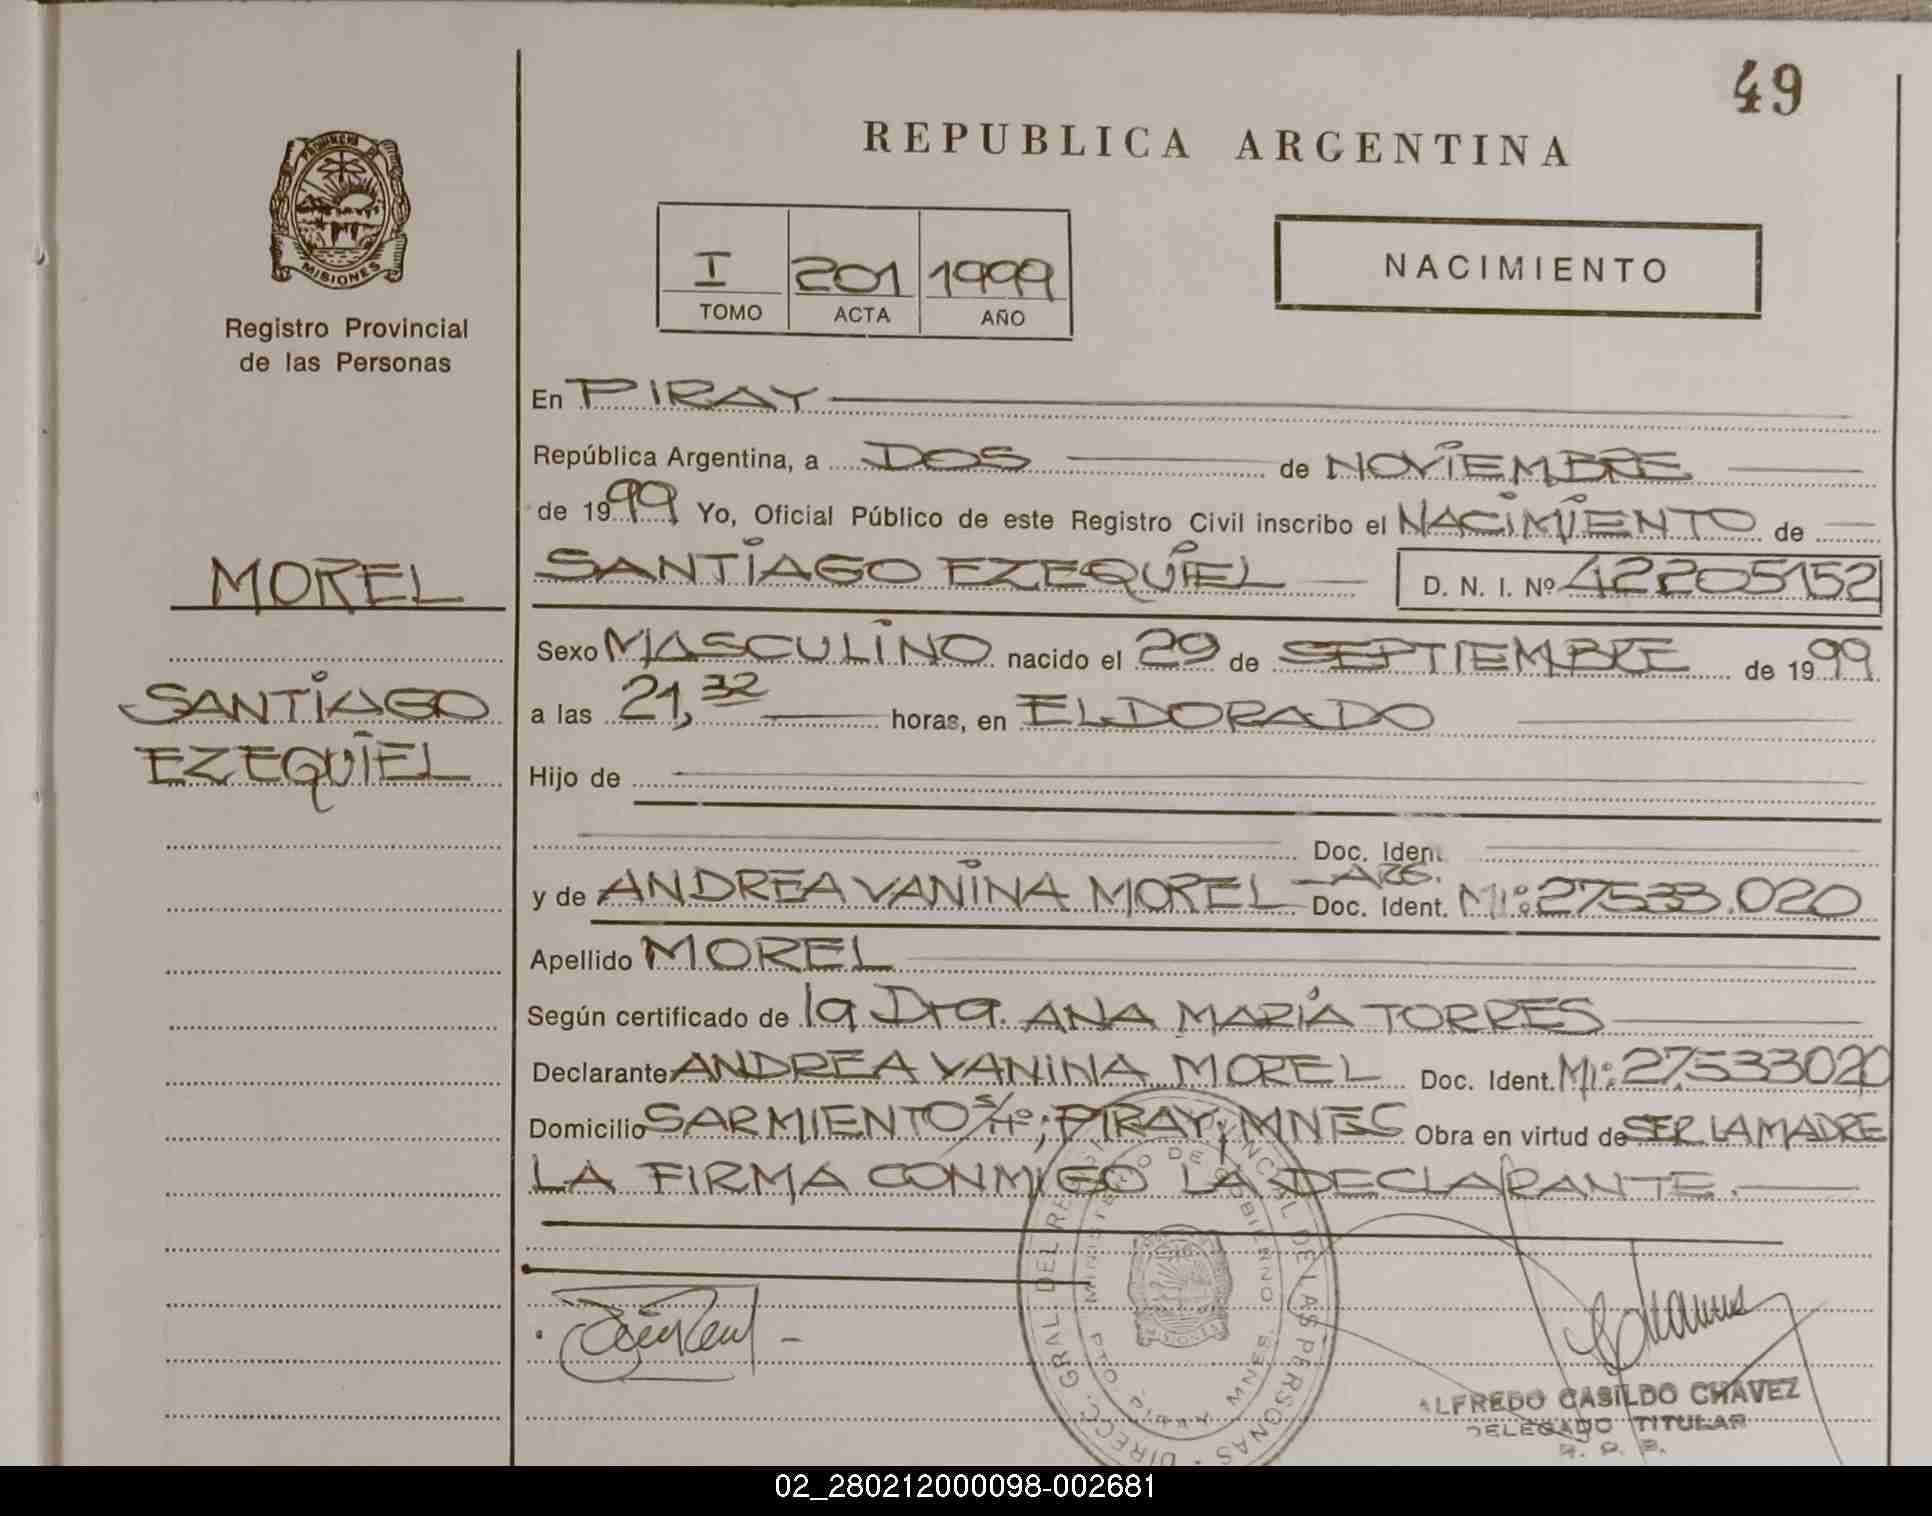 49
REPUBLICA ARGENTINA
PROVINCIA D
MISIONES
Registro Provincial
de las Personas
I 201 1999
TOMO ACTA AÑO
NACIMIENTO
En PIRAY
República Argentina, a DOS de NOVIEMBRE
de 1999 Yo, Oficial Público de este Registro Civil inscribo el NACIMIENTO de
MOREL
SANTIAGO EZEQUIEL D. N. I. Nº 42205152
Sexo MASCULINO nacido el 29 de SEPTIEMBRE de 1999
SANTIAGO
a las 21,32 horas, en ELDORADO
EZEQUIEL
Hijo de
Doc. Ident.
y de ANDREA VANINA MOREL - ARG. Doc. Ident. MI: 27533.020
Apellido MOREL
Según certificado de la Dra. ANA MARIA TORRES
Declarante ANDREA VANINA MOREL Doc. Ident. MI: 27533020
Domicilio SARMIENTO S/Nº; PIRAY; MNES Obra en virtud de SER LA MADRE
LA FIRMA CONMIGO LA DECLARANTE.
DIRECC. GRAL. DEL REG. PROVINCIAL DE LAS PERSONAS
MINISTERIO DE GOBIERNO
PTO. PIRAY MNES.
MISIONES
ALFREDO CASILDO CHAVEZ
DELEGADO TITULAR
R. P. P.
02_280212000098-002681